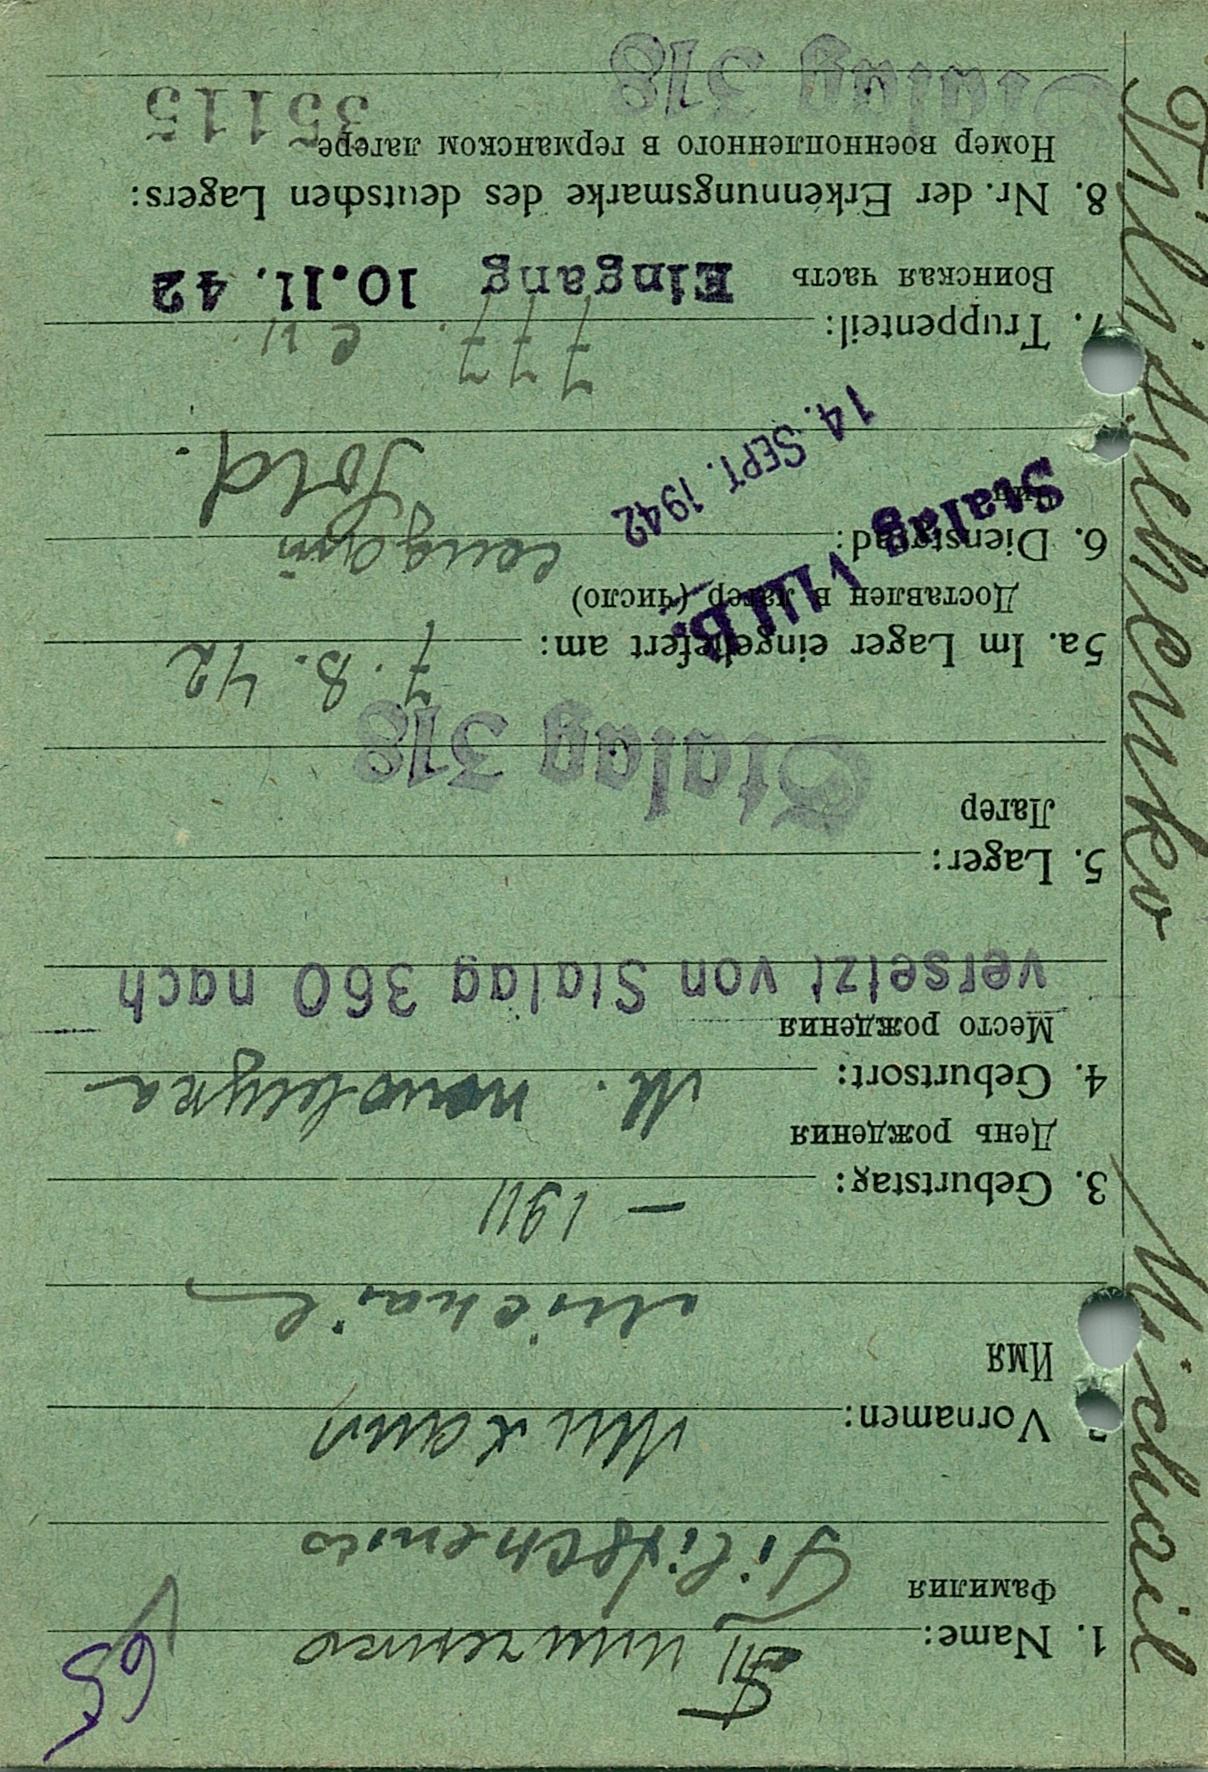 65
1. Name:
Фамилия
Filitschenko
Vornamen: Михаил
Имя
Michail
3. Geburtstag: – 1911
День рождения
4. Geburtsort:
Место рождения
versetzt von Stalag 360 nach
5. Lager:
Лагер
Stalag 318
5a. Im Lager eingeliefert am: 7. 8. 42
Доставлен в лагер (число)
Stalag VIII B.
14. SEPT. 1942
6. Dienstgrad:
Sold.
7. Truppenteil: 777.
Воинская часть
Eingang 10.11.42
8. Nr. der Erkennungsmarke des deutschen Lagers:
Номер военнопленного в германском лагере
35115
Stalag 318
Filischenko Michail